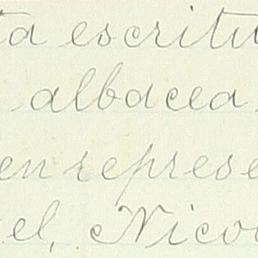 ta escritu
albacea
en represe
el, Nico